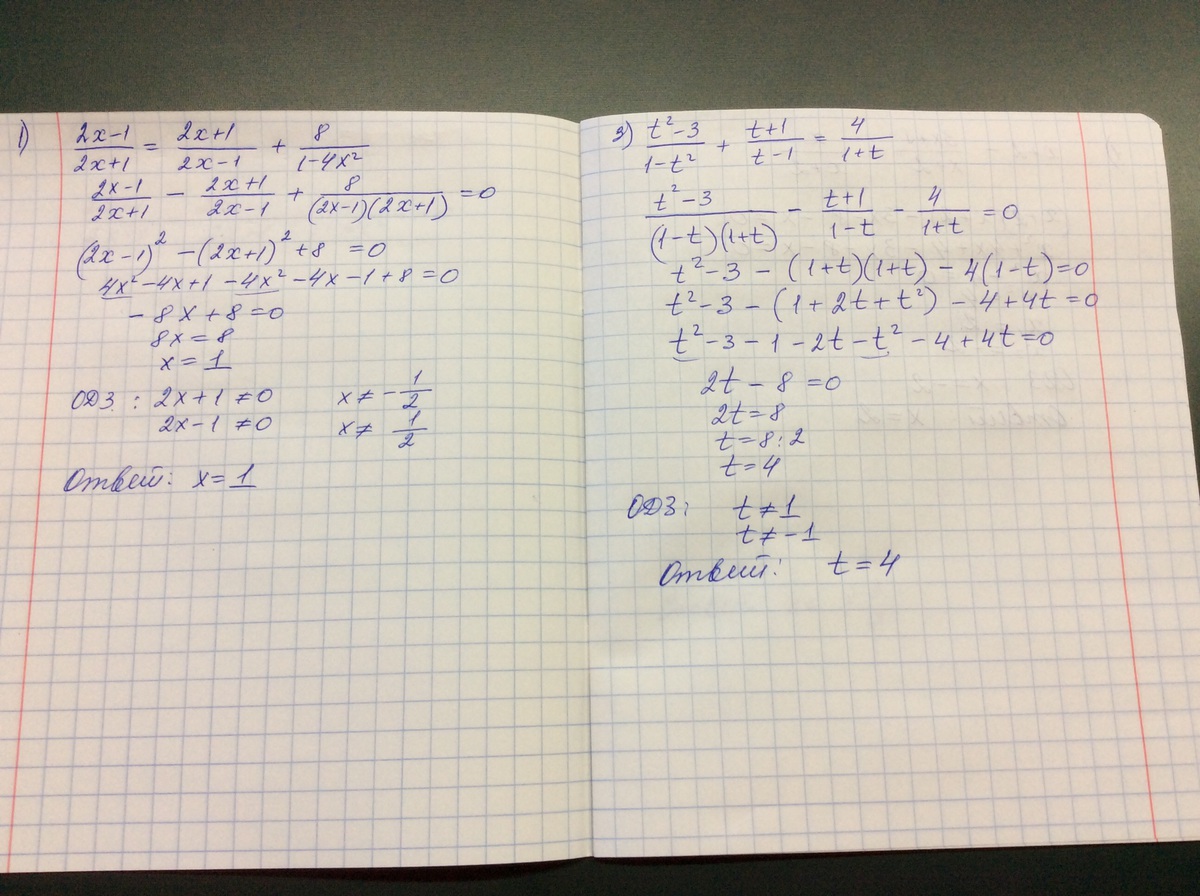 1) (2x-1)/(2x+1) = (2x+1)/(2x-1) + 8/(1-4x²)
(2x-1)/(2x+1) - (2x+1)/(2x-1) + 8/((2x-1)(2x+1)) = 0
(2x-1)² - (2x+1)² + 8 = 0
4x² - 4x + 1 - 4x² - 4x - 1 + 8 = 0
- 8x + 8 = 0
8x = 8
x = 1
ОДЗ: 2x+1 ≠ 0 x ≠ - 1/2
2x-1 ≠ 0 x ≠ 1/2
Ответ: x = 1
3) (t²-3)/(1-t²) + (t+1)/(t-1) = 4/(1+t)
(t²-3)/((1-t)(1+t)) - (t+1)/(1-t) - 4/(1+t) = 0
t² - 3 - (1+t)(1+t) - 4(1-t) = 0
t² - 3 - (1 + 2t + t²) - 4 + 4t = 0
t² - 3 - 1 - 2t - t² - 4 + 4t = 0
2t - 8 = 0
2t = 8
t = 8 : 2
t = 4
ОДЗ: t ≠ 1
t ≠ -1
Ответ: t = 4